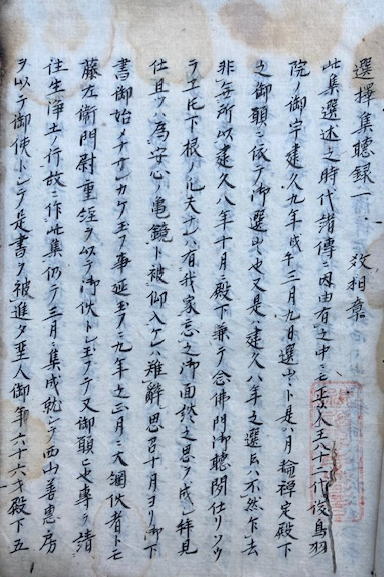 選擇集聽録一　教相章
此集選述之時代諸傳ニ因由有之中ニモ人王八十二代後鳥羽
院ノ御宇建久九年戊午三月九日選出ト是ハ月輪禅定殿下
之御願ニ依テ御選出也又是ハ建久八年之選トハ不然乍去
非無所以建久八年十月殿下兼テ念佛門御聽聞仕リソウ
ラエ𪜈下根ノ凡夫ナレハ有我家忘之御面談之思ヲ成シ拝見
仕且ツハ為安心ノ亀鏡ト被仰入ケレハ難辭思召十月ヨリ御下
書御始メナサレカケ玉フ事延玉フニ九年之三月ニ大調伙者トモ
藤左衛門尉重経ヲ以テ御伏トシ玉ヲテ又御願ニ也專ラ請
往生浄土ノ行故ニ作此集仍テ三月ニ集成就シテ西山善惠房
ヲ以テ御使トシテ是書ヲ被進タ聖人御年六十六才殿下五